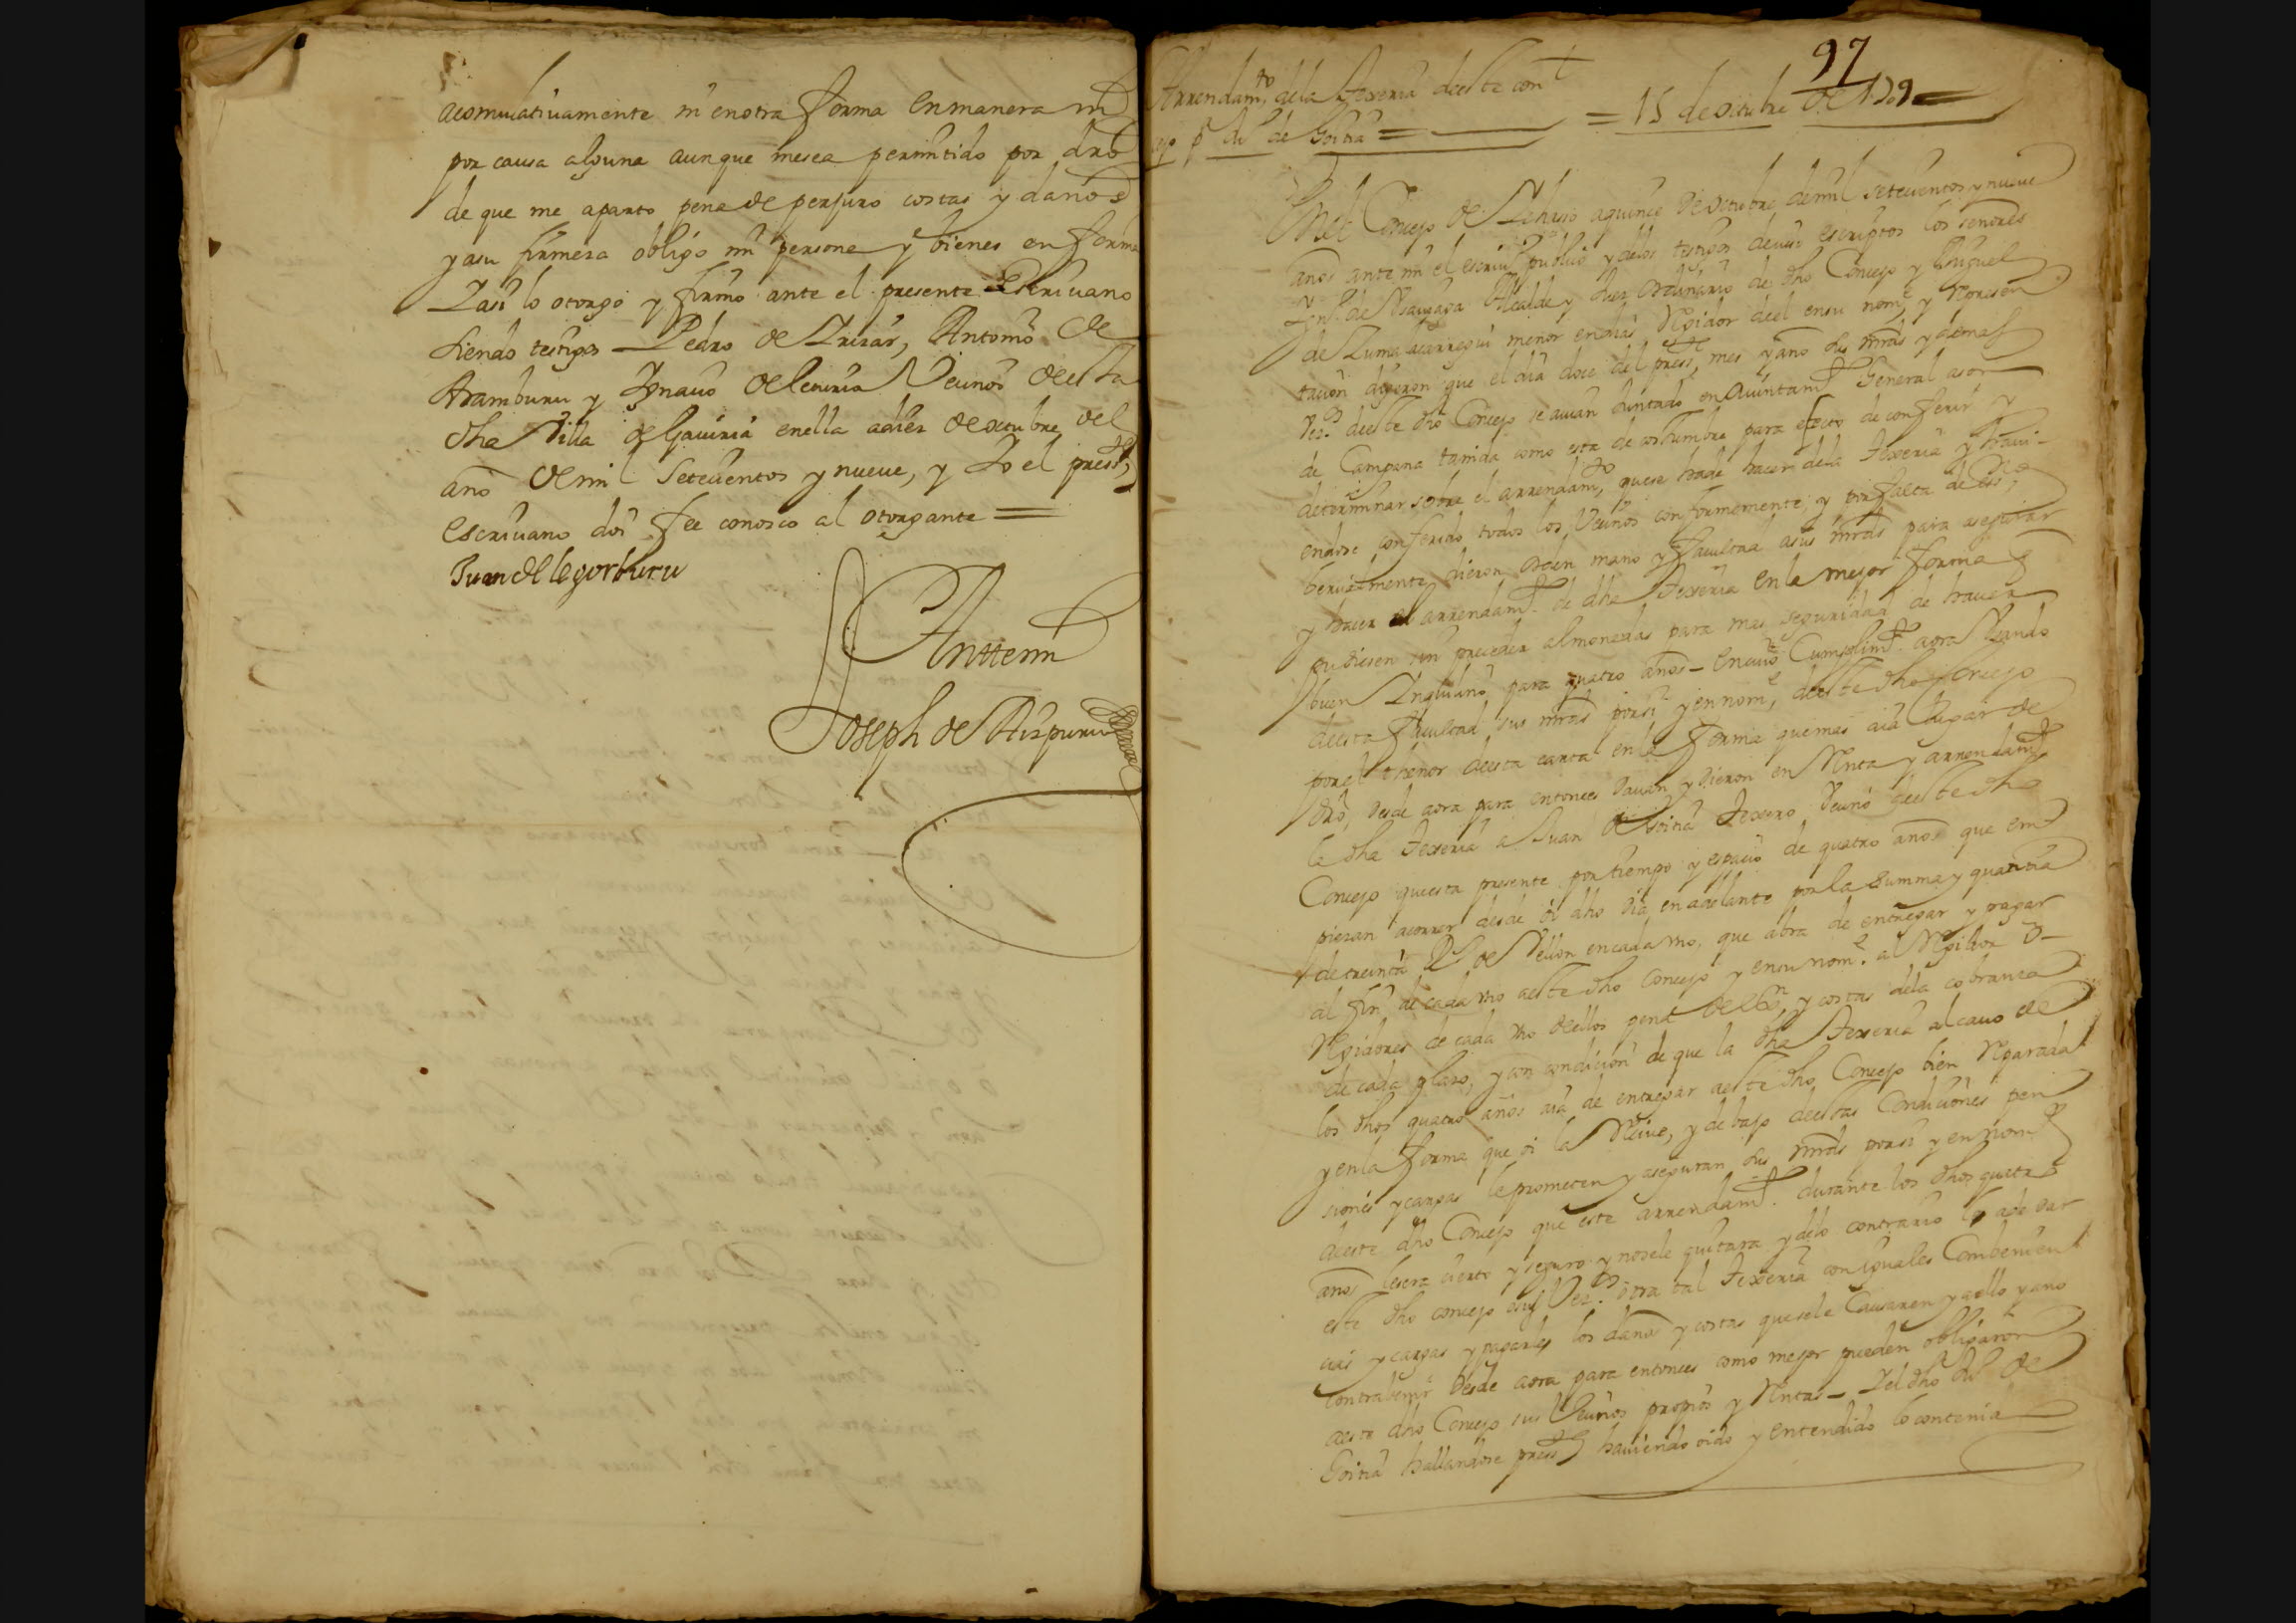 acomulatiuamente ni enotra forma enmanera ni
por causa alguna aunque mesea permitido por dro
de que me aparto pena de perjuro costas y daños
yasu firmeza obligo mi persona y bienes en forma
Y asi lo otorgo y firmo ante el presente Escriuano
siendo testigos Pedro de Irizar, Antonio de
Aramburu y Ignacio de Vecinos de esta
dha Villa de Gauiria enella adiez de octubre del
año de mil setecientos y nueue, y Yo el press.te
escriuano doi fee conosco al otorgante =
Juan de legorburu
Anttemi
Joseph de Aizpuru
97
Arrendam.to dela Texeria deeste con
ejo p.a Ju.o de Goitia = = 15 de octubre de 1709
Enel Concejo de aquince de octubre demil setecientos y nueue
años ante mi el escriu.o publico y delos testigos deiuso escriptos los señores
de Alcalde y Juez ordinario de dho Concejo y Miguel
de Zumalacarregui menor endias Regidor deel ensu nom.e y Represen
tacion digeron que el dia doce del press.te mes y año sus mrds y demas
vez.os deeste dho Concejo se auian Juntado en Aiuntam.to General ason
de Campana tanida como esta de costumbre para efecto de conferir y
determinar sobre el arrendam.to quese hade hacer dela Texeria y haui-
endose conferido todos los Vecinos conformemente, y
dieron orden mano y facultad asus mrds para asegurar
y hacer el arrendam.to de dha Texeria en la mejor forma q
pudiesen sin preceder almonedas para mas seguridad de hauer
buen Inquilino para quatro años - Encuio Cumplim.to aora Usando
deesta facultad sus mrds porsi y en nom.e deeste dho Concejo
porel thenor deesta carta en la forma quemas aia lugar de
dro, desde aora para entonces dauan y dieron en Renta y arrendam.to
la dha Texeria a Juan de Goitia Texero Vecino deeste dho
Concejo questa presente por tiempo y espacio de quatro años que em
piezan acorrer desde oi dho dia en adelante por la summa y quantia
de treinta R.s de Vellon encada vno, que abra de entregar y pagar
al fin de cada vno aeste dho Concejo y ensu nom.e al Regidor o
Regidores de cada vno deellos pena de ex.on y costas dela cobranza
de cada plazo, y con condicion de que la dha Texeria alcauo de
los dhos quatro años aia de entregar aeste dho Concejo bien Reparada
y enla forma que oi la Reciue, y debajo deestas Condiciones pen
siones y cargas le prometen y aseguran sus mrds porsi y en nom.e
deeste dho Concejo que este arrendam.to durante los dhos quatro
años lesera cierto y seguro y nosele quitara y delo contrario le ade dar
este dho concejo osus Vez.os otra tal Texeria con iguales Combenien
cias y cargas y pagarles los daños y costas quesele Causaren y aello y ano
contrabenir desde aora para entonces como mejor pueden obligaron
aeste dho Concejo sus Vecinos propios y Rentas - Y el dho Ju.o de
Goitia hallandose press.te hauiendo oido y entendido lo contenia